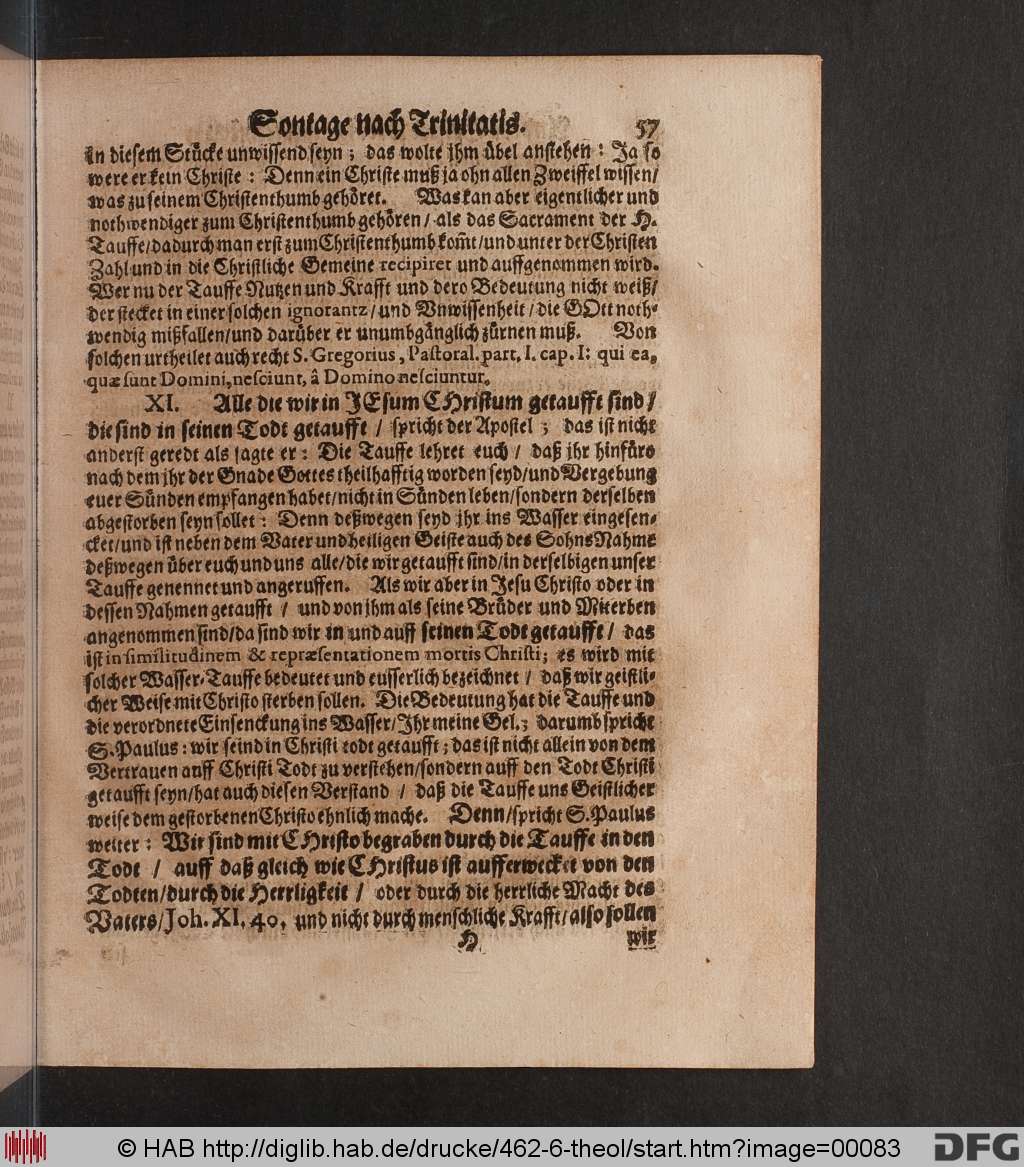 Sontage nach Trinitatis. 57
in diesem Stücke unwissend seyn ; das wolte jhm übel anstehen : Ja so
were er kein Christe : Denn ein Christe muß ja ohn allen Zweiffel wissen/
was zu seinem Christenthumb gehöret. Was kan aber eigentlicher und
nothwendiger zum Christenthumb gehören/ als das Sacrament der H.
Tauffe/dadurch man erst zum Christenthumb kom̃t/und unter der Christen
Zahl und in die Christliche Gemeine recipiret und auffgenommen wird.
Wer nu der Tauffe Nutzen und Krafft und dero Bedeutung nicht weiß/
der stecket in einer solchen ignorantz/und Vnwissenheit/die GOtt noth-
wendig mißfallen/und darüber er unumbgänglich zürnen muß. Von
solchen urtheilet auch recht S. Gregorius, Pastoral. part. I. cap. I: qui ea,
quæ sunt Domini, nesciunt, â Domino nesciuntur.
XI. Alle die wir in JEsum CHristum getaufft sind/
die sind in seinen Todt getaufft / spricht der Apostel ; das ist nicht
anderst geredt als sagte er : Die Tauffe lehret euch / daß jhr hinfüro
nach dem jhr der Gnade Gottes theilhafftig worden seyd/und Vergebung
euer Sünden empfangen habet/nicht in Sünden leben/sondern derselben
abgestorben seyn sollet : Denn deßwegen seyd jhr ins Wasser eingesen-
cket/und ist neben dem Vater und heiligen Geiste auch des Sohns Nahme
deßwegen über euch und uns alle/die wir getaufft sind/in derselbigen unser
Tauffe genennet und angeruffen. Als wir aber in Jesu Christo oder in
dessen Nahmen getaufft / und von jhm als seine Brüder und Miterben
angenommen sind/da sind wir in und auff seinen Todt getaufft/ das
ist in similitudinem & repræsentationem mortis Christi; es wird mit
solcher Wasser-Tauffe bedeutet und eusserlich bezeichnet / daß wir geistli-
cher Weise mit Christo sterben sollen. Die Bedeutung hat die Tauffe und
die verordnete Einsenckung ins Wasser/Jhr meine Gel.; darumb spricht
S. Paulus : wir seind in Christi todt getaufft ; das ist nicht allein von dem
Vertrauen auff Christi Todt zu verstehen/sondern auff den Todt Christi
getaufft seyn/hat auch diesen Verstand / daß die Tauffe uns Geistlicher
weise dem gestorbenen Christo ehnlich mache. Denn/spricht S. Paulus
weiter : Wir sind mit CHristo begraben durch die Tauffe in den
Todt / auff daß gleich wie CHristus ist aufferwecket von den
Todten/durch die Herrligkeit / oder durch die herrliche Macht des
Vaters/Joh. XI. 40, und nicht durch menschliche Krafft/also sollen
H wir
© HAB http://diglib.hab.de/drucke/462-6-theol/start.htm?image=00083 DFG